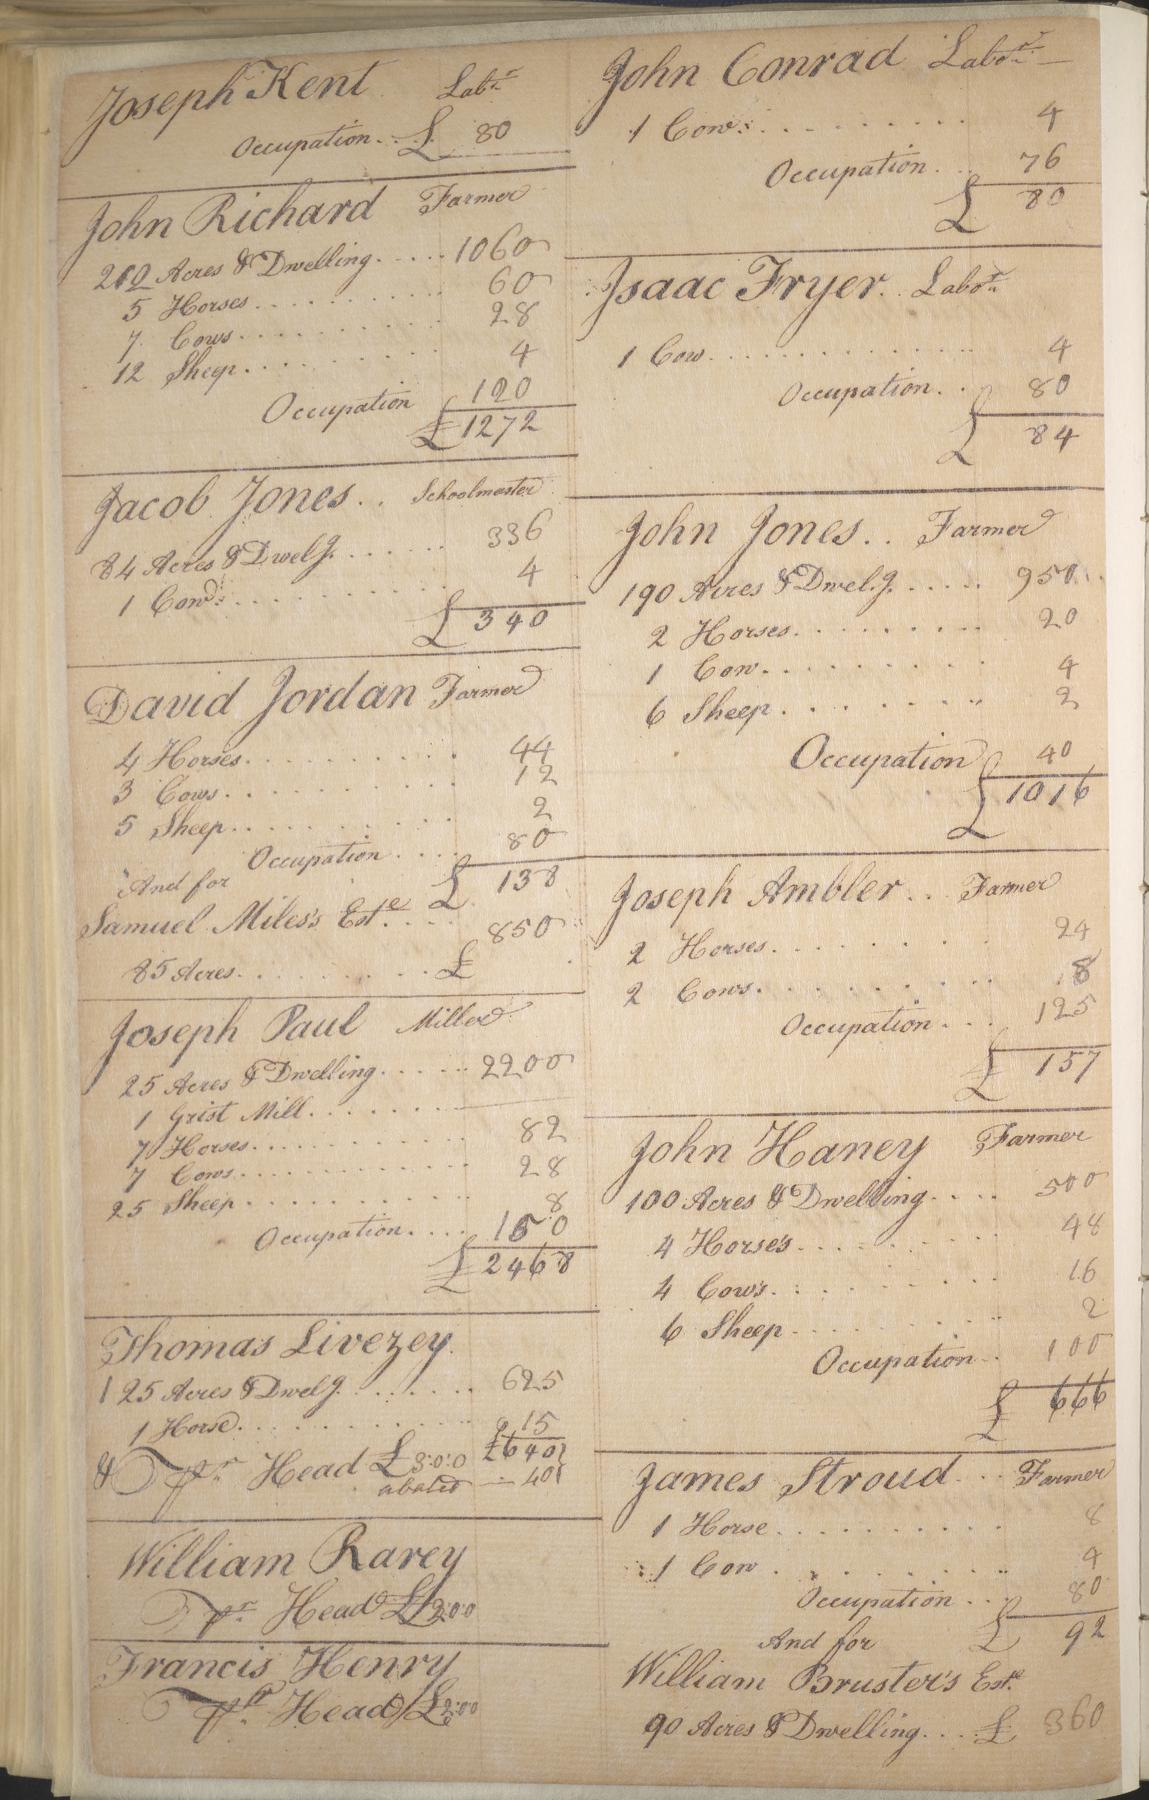 Joseph Kent Labr
Occupation £ 80
John Richard Farmer
212 Acres & Dwelling 1060
5 Horses 60
7 Cows 28
12 Sheep 4
Occupation 120
£ 1272
Jacob Jones Schoolmaster
84 Acres & Dwelg. 336
1 Cow 4
£ 340
David Jordan Farmer
4 Horses 44
3 Cows 12
5 Sheep 2
Occupation 80
£ 138
And for
Samuel Miles's Este. 850
85 Acres £
Joseph Paul Miller
25 Acres & Dwelling 2200
1 Grist Mill
7 Horses 82
7 Cows 28
25 Sheep 8
Occupation 150
£ 2468
Thomas Livezey
125 Acres & Dwelg. 625
1 Horse 15
£ 640
& pr Head £3:0:0
abated 40
William Rarey
pr Head £2:0:0
Francis Henry
pr Head £2:0:0
John Conrad Labor
1 Cow 4
Occupation 76
£ 80
Isaac Fryer Labor
1 Cow 4
Occupation 80
£ 84
John Jones Farmer
190 Acres & Dwel.g. 950
2 Horses 20
1 Cow 4
6 Sheep 2
Occupation 40
£ 1016
Joseph Ambler Farmer
2 Horses 24
2 Cows 8
Occupation 125
£ 157
John Haney Farmer
100 Acres & Dwelling 500
4 Horses 48
4 Cows 16
6 Sheep 2
Occupation 100
£ 666
James Stroud Farmer
1 Horse 8
1 Cow 4
Occupation 80
£ 92
And for
William Bruster's Este.
90 Acres & Dwelling £ 360